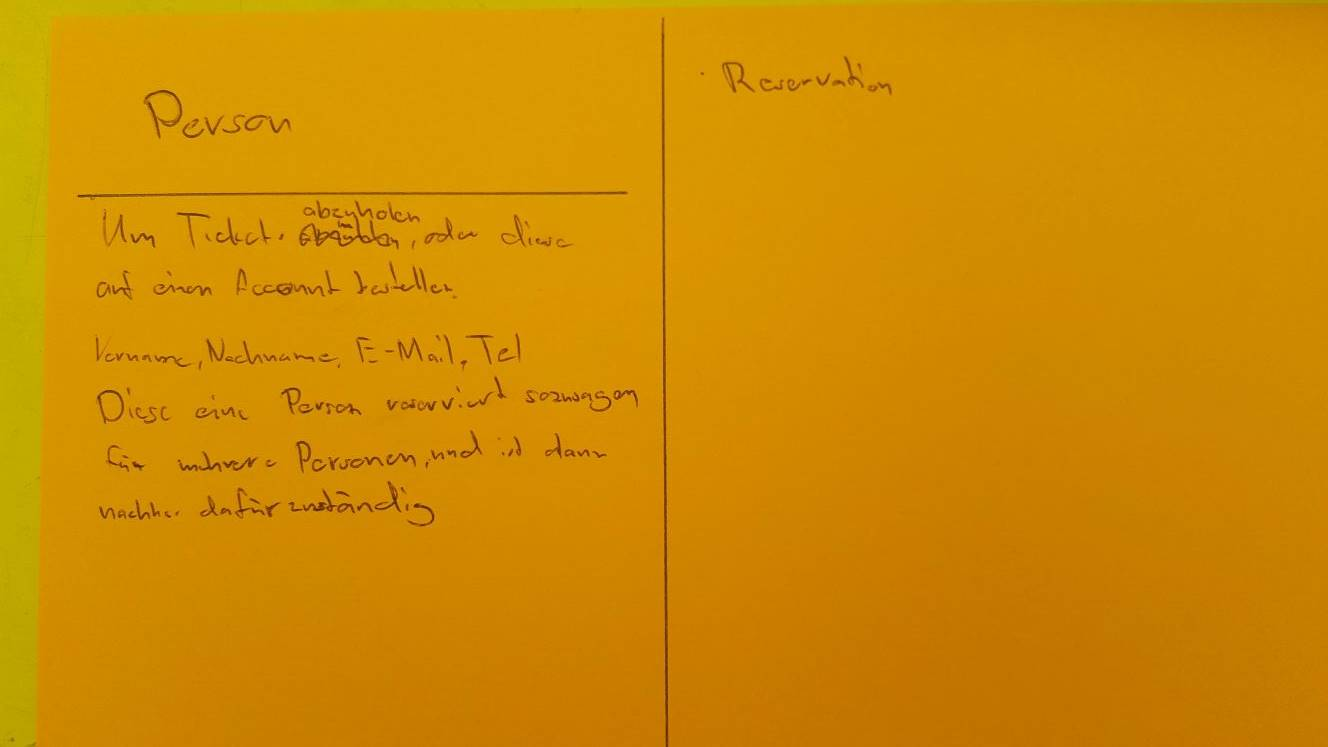 Person
Um Tickets abzuholen, oder diese
auf einen Account bestellen.
Vorname, Nachname, E-Mail, Tel
Diese eine Person reserviert sozusagen
für mehrere Personen, und ist dann
nachher dafür zuständig
· Reservation